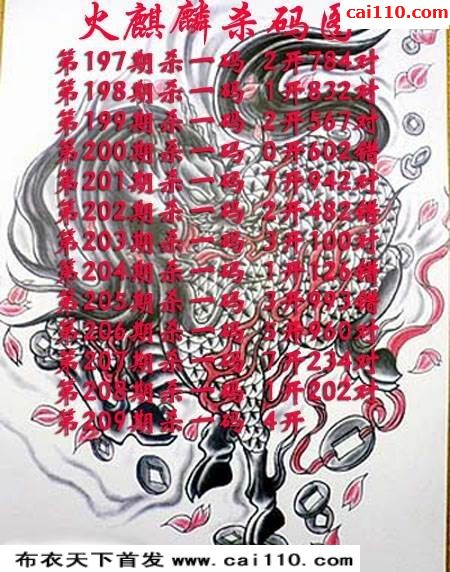 cai110.com
火麒麟杀码图
第197期杀一码 2开784对
第198期杀一码 1开832对
第199期杀一码 2开567对
第200期杀一码 0开602错
第201期杀一码 7开942对
第202期杀一码 2开482错
第203期杀一码 3开100对
第204期杀一码 1开126错
第205期杀一码 3开993错
第206期杀一码 5开960对
第207期杀一码 7开234对
第208期杀一码 1开202对
第209期杀一码 4开
布衣天下首发 www.cai110.com